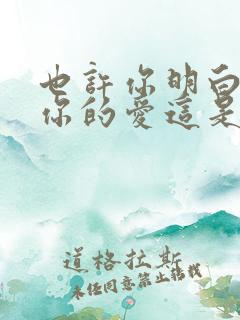 也許你明白
你的愛這是
道格拉斯
未经同意禁止转载